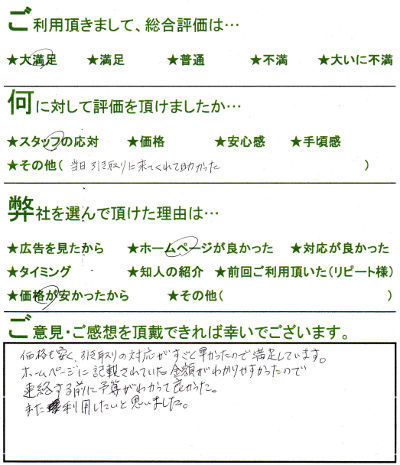 ご利用頂きまして、総合評価は…
★大満足 ★満足 ★普通 ★不満 ★大いに不満
何に対して評価を頂けましたか…
★スタッフの応対 ★価格 ★安心感 ★手頃感
★その他( 当日引き取りに来てくれて助かった )
弊社を選んで頂けた理由は…
★広告を見たから ★ホームページが良かった ★対応が良かった
★タイミング ★知人の紹介 ★前回ご利用頂いた(リピート様)
★価格が安かったから ★その他( )
ご意見・ご感想を頂戴できれば幸いでございます。
価格も安く、引き取りの対応がすごく早かったので満足しています。
ホームページに記載されていた金額がわかりやすかったので
連絡する前に予算がわかって良かった。
また利用したいと思いました。